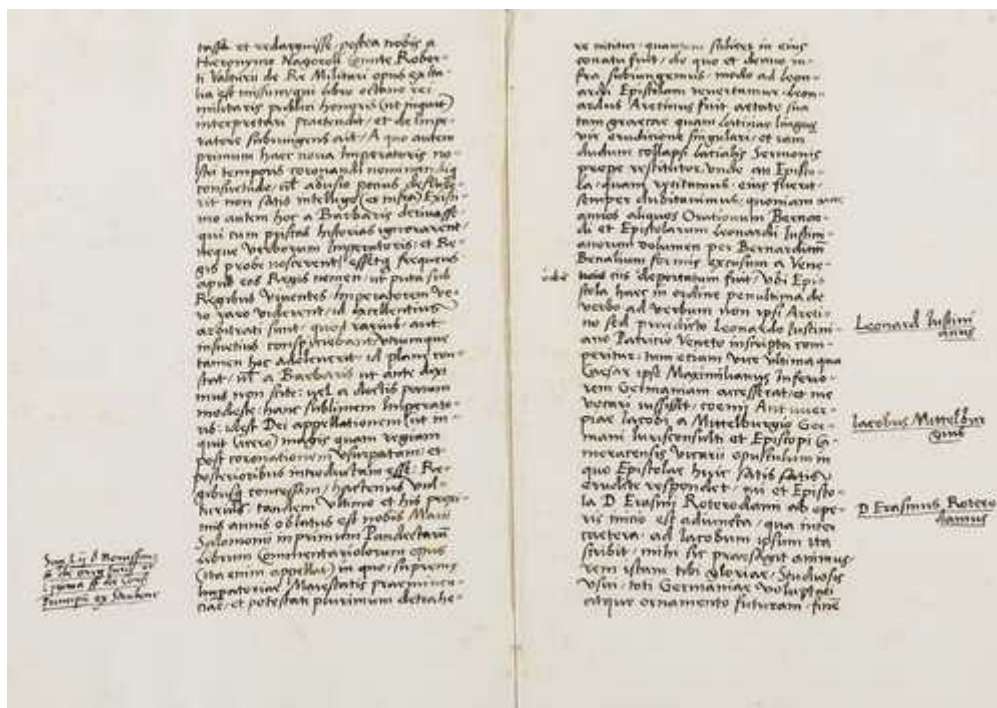 tasse et redarguisse postea nobis a
Hieronymo Nogaroll Comite Rober-
ti Valturii de Re Militari opus exita-
lia est missumque libro octavo rei
militaris publici honoris (ut inquit)
interpretari praetendit et de Impe-
ratore subiungens ait A quo autem
primum haec nova Imperatoris no-
stri temporis coronandi nominandique
consuetudo, vel abusio potius defluxe-
rit non satis intelligo (et infra) Existi-
mo autem hoc a Barbaris derivasse
qui cum priscas historias ignorarent
neque verborum Imperatoris et Re-
gis probe noscerent, essetque frequens
apud eos Regis nomen ut puta sub
Regibus viventes Imperatorem ve-
ro raro viderent id excellentius
arbitrati sunt quod rarius aut
insuetius conspiciebant utrumque
tamen hoc adolenerit id plane con-
stat vel a Barbaris ut ante dixi
mus non scite vel a doctis parum
modeste hanc sublimem Imperato-
ris idest Dei appellationem (ut in-
quit Cicero) magis quam regiam
post coronationem usurpatam et
posterioribus introductam esse Re-
gibusque concessam hactenus Val-
turius tandem ultimo et his proxi-
mis annis oblatus est nobis Marii
Salomonii in primum Pandectarum
librum Commentariolorum opus
(ita enim appellat) in quo supremae
Imperatoriae Maiestatis praeminen-
ciae et potestati plurimum detrahe-
re nititur quantum saltem in eius
conatu fuit de quo et denuo in-
fra subiungemus modo ad Leon-
ardi Epistolam revertamur Leon-
ardus Aretinus fuit aetate sua
tam graecae quam Latinae linguae
vir eruditione singulari et iam
dudum collapsi latialis Sermonis
prope restitutor unde an Episto-
la quam recitamus eius fuerit
semper dubitavimus quoniam ante
annos aliquos Orationum Bernar-
di et Epistolarum Leonardi Iustini-
anorum volumen per Bernardinum
Benalium formis excusum a Vene-
tiis eis deportatum fuit Ubi Epi-
stola haec in ordine penultima de
verbo ad verbum non ipsi Areti-
no sed praedicto Leonardo Iustini-
ano Patritio Veneto inscripta com-
peritur tum etiam vice ultima qua
Caesar ipse Maximilianus Inferio-
rem Germaniam accesserat et me
vocari iussisset coemi Antuuer-
piae Iacobi a Mittelburgio Ger-
mani Iurisconsulti et Episcopi Ca-
meracensis Vicarii opusculum in
quo Epistolae huic satis
erudite respondet cui et Episto-
la D Erasmi Roterodami ab ope-
ris initio est adiuncta, qua inter
caetera ad Iacobum ipsum ita
scribit mihi sic praesagit animus
rem istam tibi gloriae Studiosis
usui toti Germaniae voluptati
atque ornamento futuram finem
Leonard Iustini
anus
Iacobus Mittelbur
gius
D Erasmus Rotero
damus